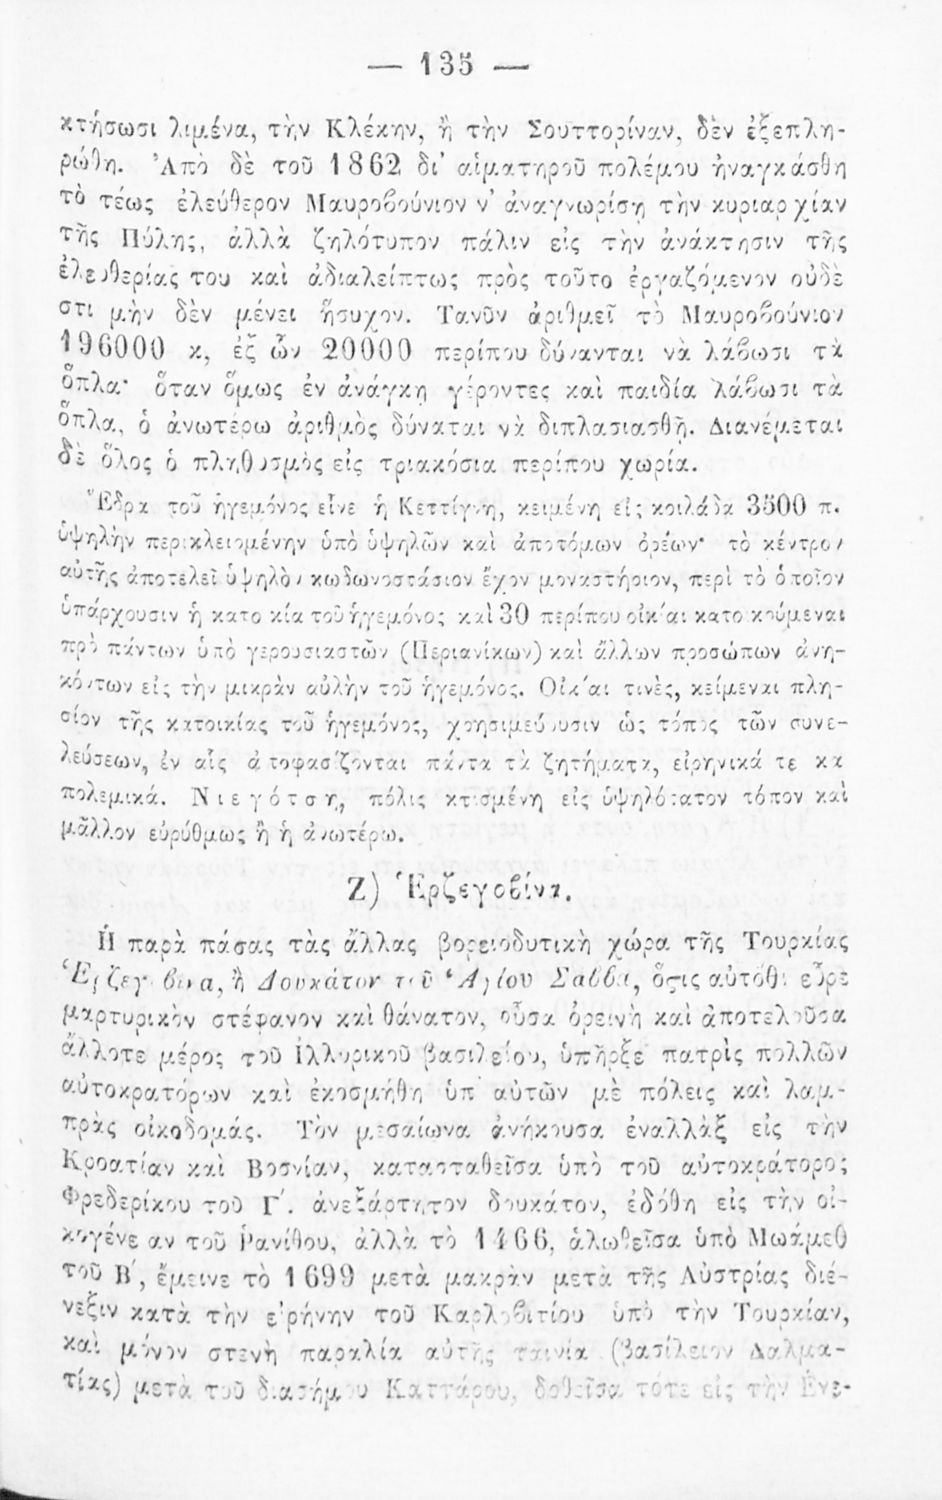 — 135 —
κτήσωσι λιμένα, τὴν Κλέκην, ἢ τὴν Σουττορίναν, δὲν ἐξεπλη-
ρώθη. Ἀπὸ δὲ τοῦ 1862 δι' αἱματηροῦ πολέμου ἠναγκάσθη
τὸ τέως ἐλεύθερον Μαυροβούνιον ν' ἀναγνωρίσῃ τὴν κυριαρχίαν
τῆς Πύλης, ἀλλὰ ζηλότυπον πάλιν εἰς τὴν ἀνάκτησιν τῆς
ἐλευθερίας του καὶ ἀδιαλείπτως πρὸς τοῦτο ἐργαζόμενον οὐδὲ
στιγμὴν δὲν μένει ἥσυχον. Τανῦν ἀριθμεῖ τὸ Μαυροβούνιον
196000 κ, ἐξ ὧν 20000 περίπου δύνανται νὰ λάβωσι τὰ
ὅπλα· ὅταν ὅμως ἐν ἀνάγκῃ γέροντες καὶ παιδία λάβωσι τὰ
ὅπλα, ὁ ἀνωτέρω ἀριθμὸς δύναται νὰ διπλασιασθῇ. Διανέμεται
δὲ ὅλος ὁ πληθυσμὸς εἰς τριακόσια περίπου χωρία.
Ἕδρα τοῦ ἡγεμόνος εἶνε ἡ Κεττίγνη, κειμένη εἰς κοιλάδα 3500 π.
ὑψηλὴν περικλειομένην ὑπὸ ὑψηλῶν καὶ ἀποτόμων ὀρέων· τὸ κέντρον
αὐτῆς ἀποτελεῖ ὑψηλὸν κωδωνοστάσιον ἔχον μοναστήριον, περὶ τὸ ὁποῖον
ὑπάρχουσιν ἡ κατοικία τοῦ ἡγεμόνος καὶ 30 περίπου οἰκίαι κατοικούμεναι
πρὸ πάντων ὑπὸ γερουσιαστῶν (Περιανίκων) καὶ ἄλλων προσώπων ἀνη-
κόντων εἰς τὴν μικρὰν αὐλὴν τοῦ ἡγεμόνος. Οἰκίαι τινὲς, κείμεναι πλη-
σίον τῆς κατοικίας τοῦ ἡγεμόνος, χρησιμεύουσιν ὡς τόπος τῶν συνε-
λεύσεων, ἐν αἷς ἀποφασίζονται πάντα τὰ ζητήματα, εἰρηνικά τε κα
πολεμικά. Νιεγότση, πόλις κτισμένη εἰς ὑψηλότατον τόπον καὶ
μᾶλλον εὐρύθμως ἢ ἡ ἀνωτέρω.
Ζ) Ἑρζεγοβίνα.
Ἡ παρὰ πάσας τὰς ἄλλας βορειοδυτικὴ χώρα τῆς Τουρκίας
Ἑρζεγοβίνα, ἢ Δουκάτον τοῦ Ἁγίου Σάββα, ὅστις αὐτόθι εὗρε
μαρτυρικὸν στέφανον καὶ θάνατον, οὖσα ὀρεινὴ καὶ ἀποτελοῦσα
ἄλλοτε μέρος τοῦ Ἰλλυρικοῦ βασιλείου, ὑπῆρξε πατρὶς πολλῶν
αὐτοκρατόρων καὶ ἐκοσμήθη ὑπ' αὐτῶν μὲ πόλεις καὶ λαμ-
πρὰς οἰκοδομάς. Τὸν μεσαίωνα ἀνήκουσα ἐναλλὰξ εἰς τὴν
Κροατίαν καὶ Βοσνίαν, κατασταθεῖσα ὑπὸ τοῦ αὐτοκράτορος
Φρεδερίκου τοῦ Γ΄. ἀνεξάρτητον δουκάτον, ἐδόθη εἰς τὴν οἰ-
κογένειαν τοῦ Ῥανίθου, ἀλλὰ τὸ 1466, ἁλωθεῖσα ὑπὸ Μωάμεθ
τοῦ Β΄, ἔμεινε τὸ 1699 μετὰ μακρὰν μετὰ τῆς Αὐστρίας διέ-
νεξιν κατὰ τὴν εἰρήνην τοῦ Καρλοβιτίου ὑπὸ τὴν Τουρκίαν,
καὶ μόνον στενὴ παραλία αὐτῆς ταινία (βασίλειον Δαλμα-
τίας) μετὰ τοῦ διασήμου Καττάρου, δοθεῖσα τότε εἰς τὴν Ἑνε-